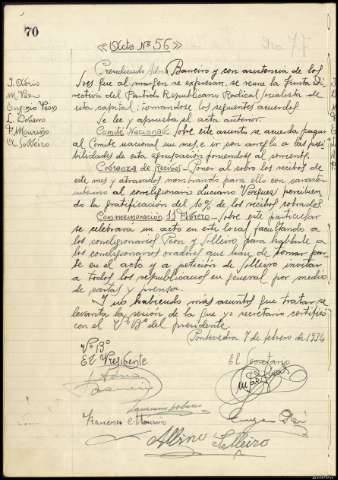 70
«Acta Nº 56»
Presidiendo Barreiro y con asistencia de los
Sres que al margen se expresan, se reune la Junta Di-
rectiva del Partido Republicano Radical Socialista de
esta capital; tomandose los siguientes acuerdos
Se lee y aprueba el acta anterior.
Comité Nacional — Sobre este asunto se acuerda pagar
al Comité nacional un mes, e ir con arreglo a las posi-
bilidades de esta agrupacion poniendose al corriente.
Cobranza de Recibos — Poner al cobro los recibos de
este mes y atrasados nombrando para ello con caracter
al correligionario Luciano
de la gratificacion del 10% de los recibos cobrados
Conmemoración 11 Febrero — Sobre este particular
se celebrara un acto en este local facultando a
los correligionarios Peon y Solleiro para hablarle a
los correligionarios oradores que han de tomar par-
te en el acto y a peticion de Solleiro invitar
a todos los republicanos en general por medio
de cartas y prensa.
Y no habiendo mas asuntos que tratar se
levanta la sesión de la que yo secretario certifico
con el Vº Bº del presidente.
Pontevedra 7 de febrero de 1934
Vº Bº
El Presidente
El Secretario
Eugenio Peón
Francisco Mouriño
Albino Solleiro
Eugenio Peon
F. Mouriño
A. Solleiro